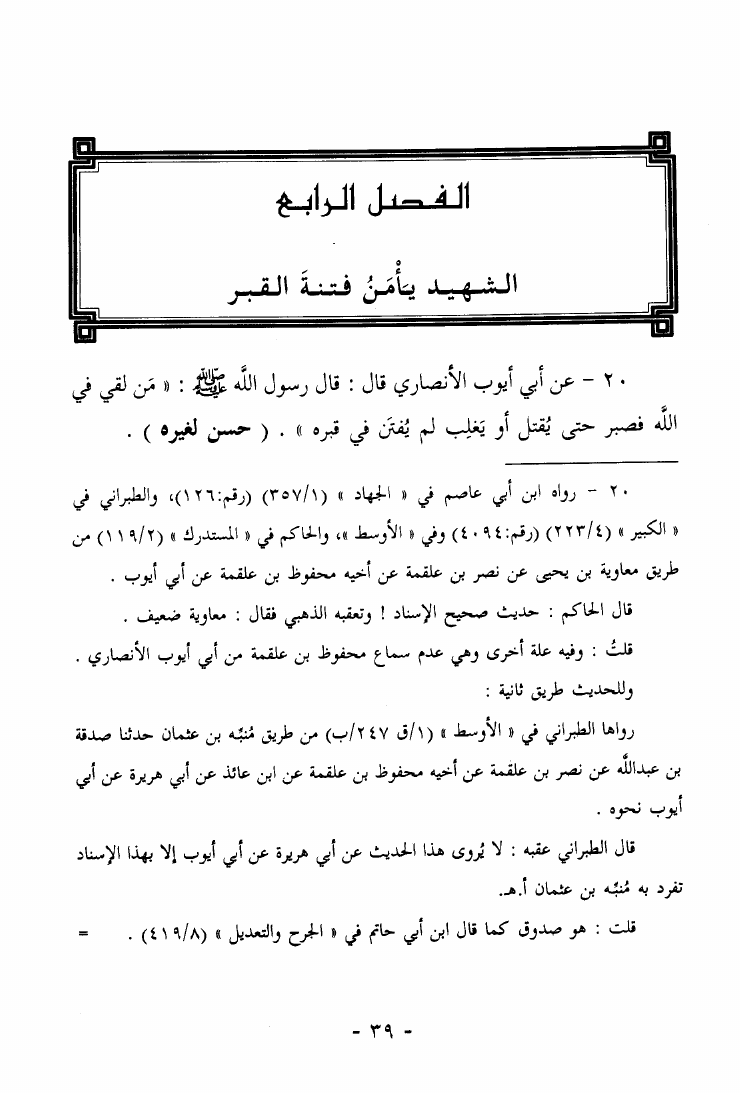 الفصل الرابع
الشهيد يَأْمَنُ فتنةَ القبر
٢٠ - عن أبي أيوب الأنصاري قال : قال رسول اللَّه ﷺ : « مَن لقي في
اللَّه فصبر حتى يُقتل أو يَغلِب لم يُفتَن في قبره » . ( حسن لغيره ) .
٢٠ - رواه ابن أبي عاصم في « الجهاد » (٣٥٧/١) (رقم:١٢٦)، والطبراني في
« الكبير » (٢٢٣/٤) (رقم:٤٠٩٤) وفي « الأوسط »، والحاكم في « المستدرك » (١١٩/٢) من
طريق معاوية بن يحيى عن نصر بن علقمة عن أخيه محفوظ بن علقمة عن أبي أيوب .
قال الحاكم : حديث صحيح الإسناد ! وتعقبه الذهبي فقال : معاوية ضعيف .
قلتُ : وفيه علة أخرى وهي عدم سماع محفوظ بن علقمة من أبي أيوب الأنصاري .
وللحديث طريق ثانية :
رواها الطبراني في « الأوسط » (١/ق ٢٤٧/ب) من طريق مُنبِّه بن عثمان حدثنا صدقة
بن عبداللَّه عن نصر بن علقمة عن أخيه محفوظ بن علقمة عن ابن عائذ عن أبي هريرة عن أبي
أيوب نحوه .
قال الطبراني عقبه : لا يُروى هذا الحديث عن أبي هريرة عن أبي أيوب إلا بهذا الإسناد
تفرد به مُنبِّه بن عثمان أ.هـ.
قلت : هو صدوق كما قال ابن أبي حاتم في « الجرح والتعديل » (٤١٩/٨) . =
- ٣٩ -